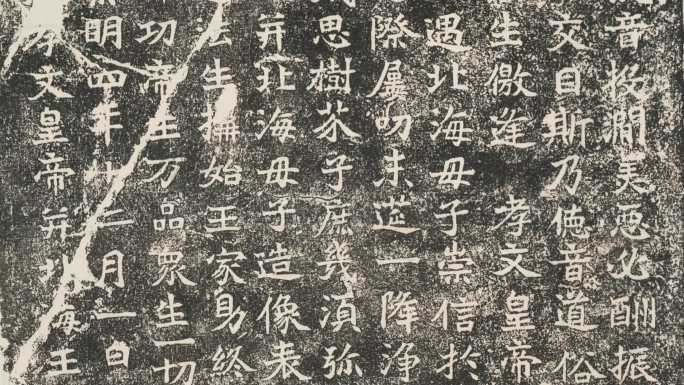 音投㵎美惡必酬振
交目斯乃德音道俗
生儌逢孝文皇帝
遇北海母子崇信於
際屢叨末莚一降淨
思樹芥子庶幾湏弥
并北海母子造像表
法生構始王家助終
功帝王万品眾生一切
明四年十二月一日
孝文皇帝并北海王